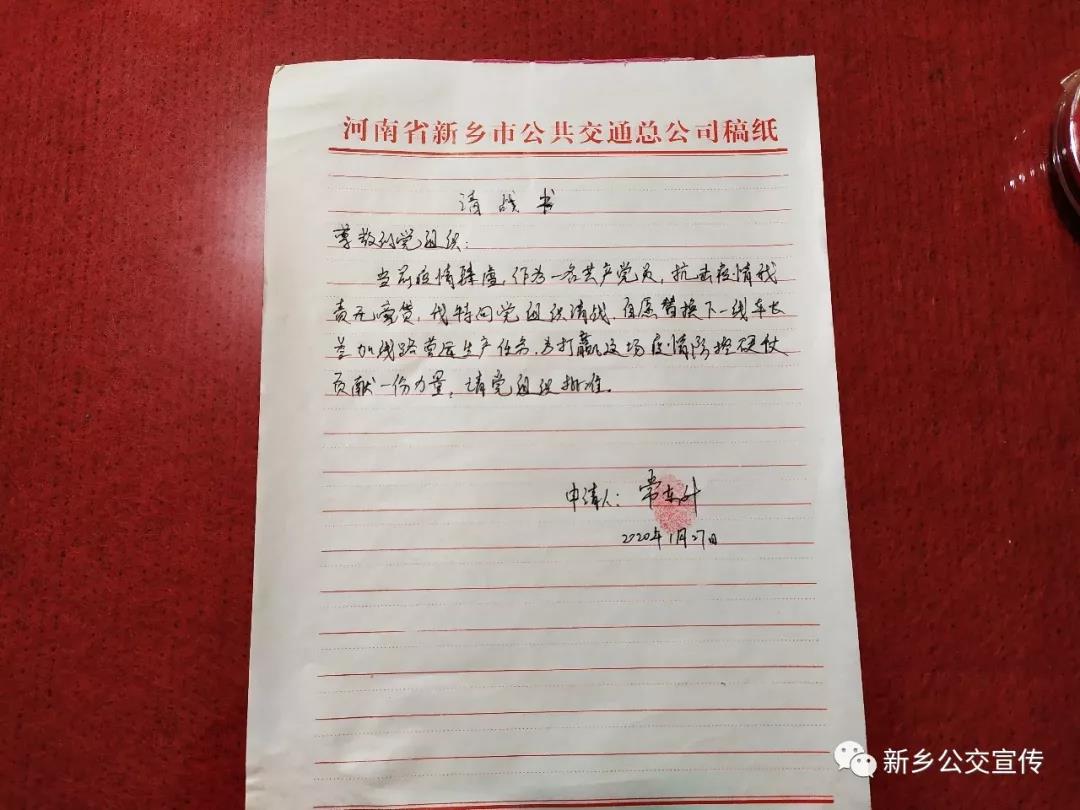 河南省新乡市公共交通总公司稿纸
请战书
尊敬的党组织：
当前疫情肆虐，作为一名共产党员，抗击疫情我
责无旁贷，我特向党组织请战，自愿替换下一线车长
参加线路营运生产任务，为打赢这场疫情防控硬仗
贡献一份力量，请党组织批准。
申请人：常东
2020年1月27日
新乡公交宣传